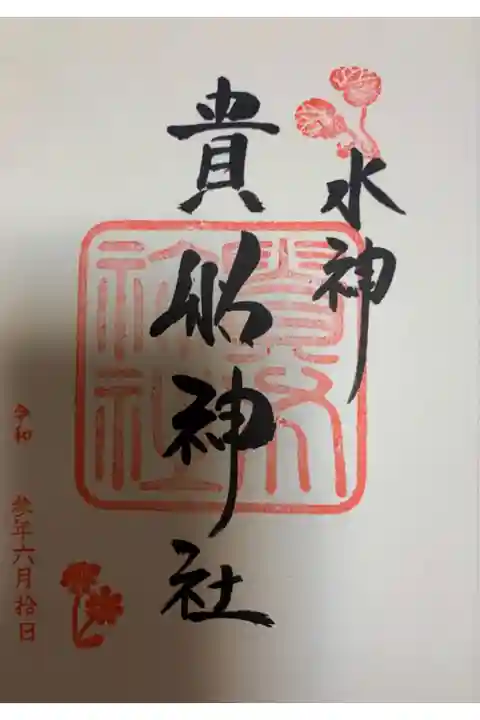 水神
貴舩神社
神社
令和 参年六月拾日